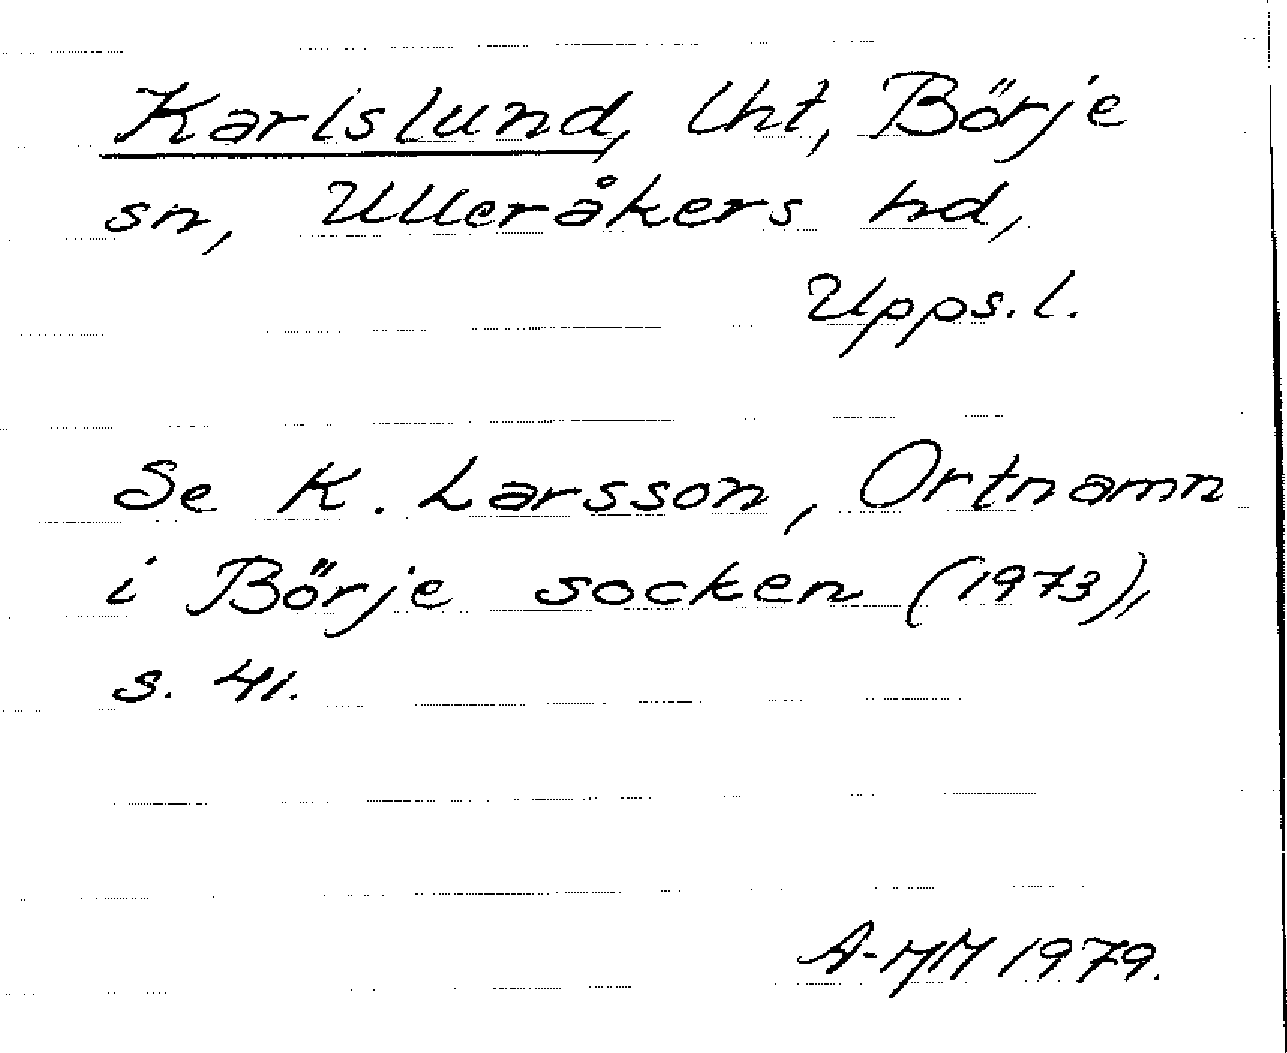 Karlslund, lht, Börje
sn, Ulleråkers hd,
Upps. l.
Se K. Larsson, Ortnamn
i Börje socken (1973),
s. 41.
A-MM 1979.